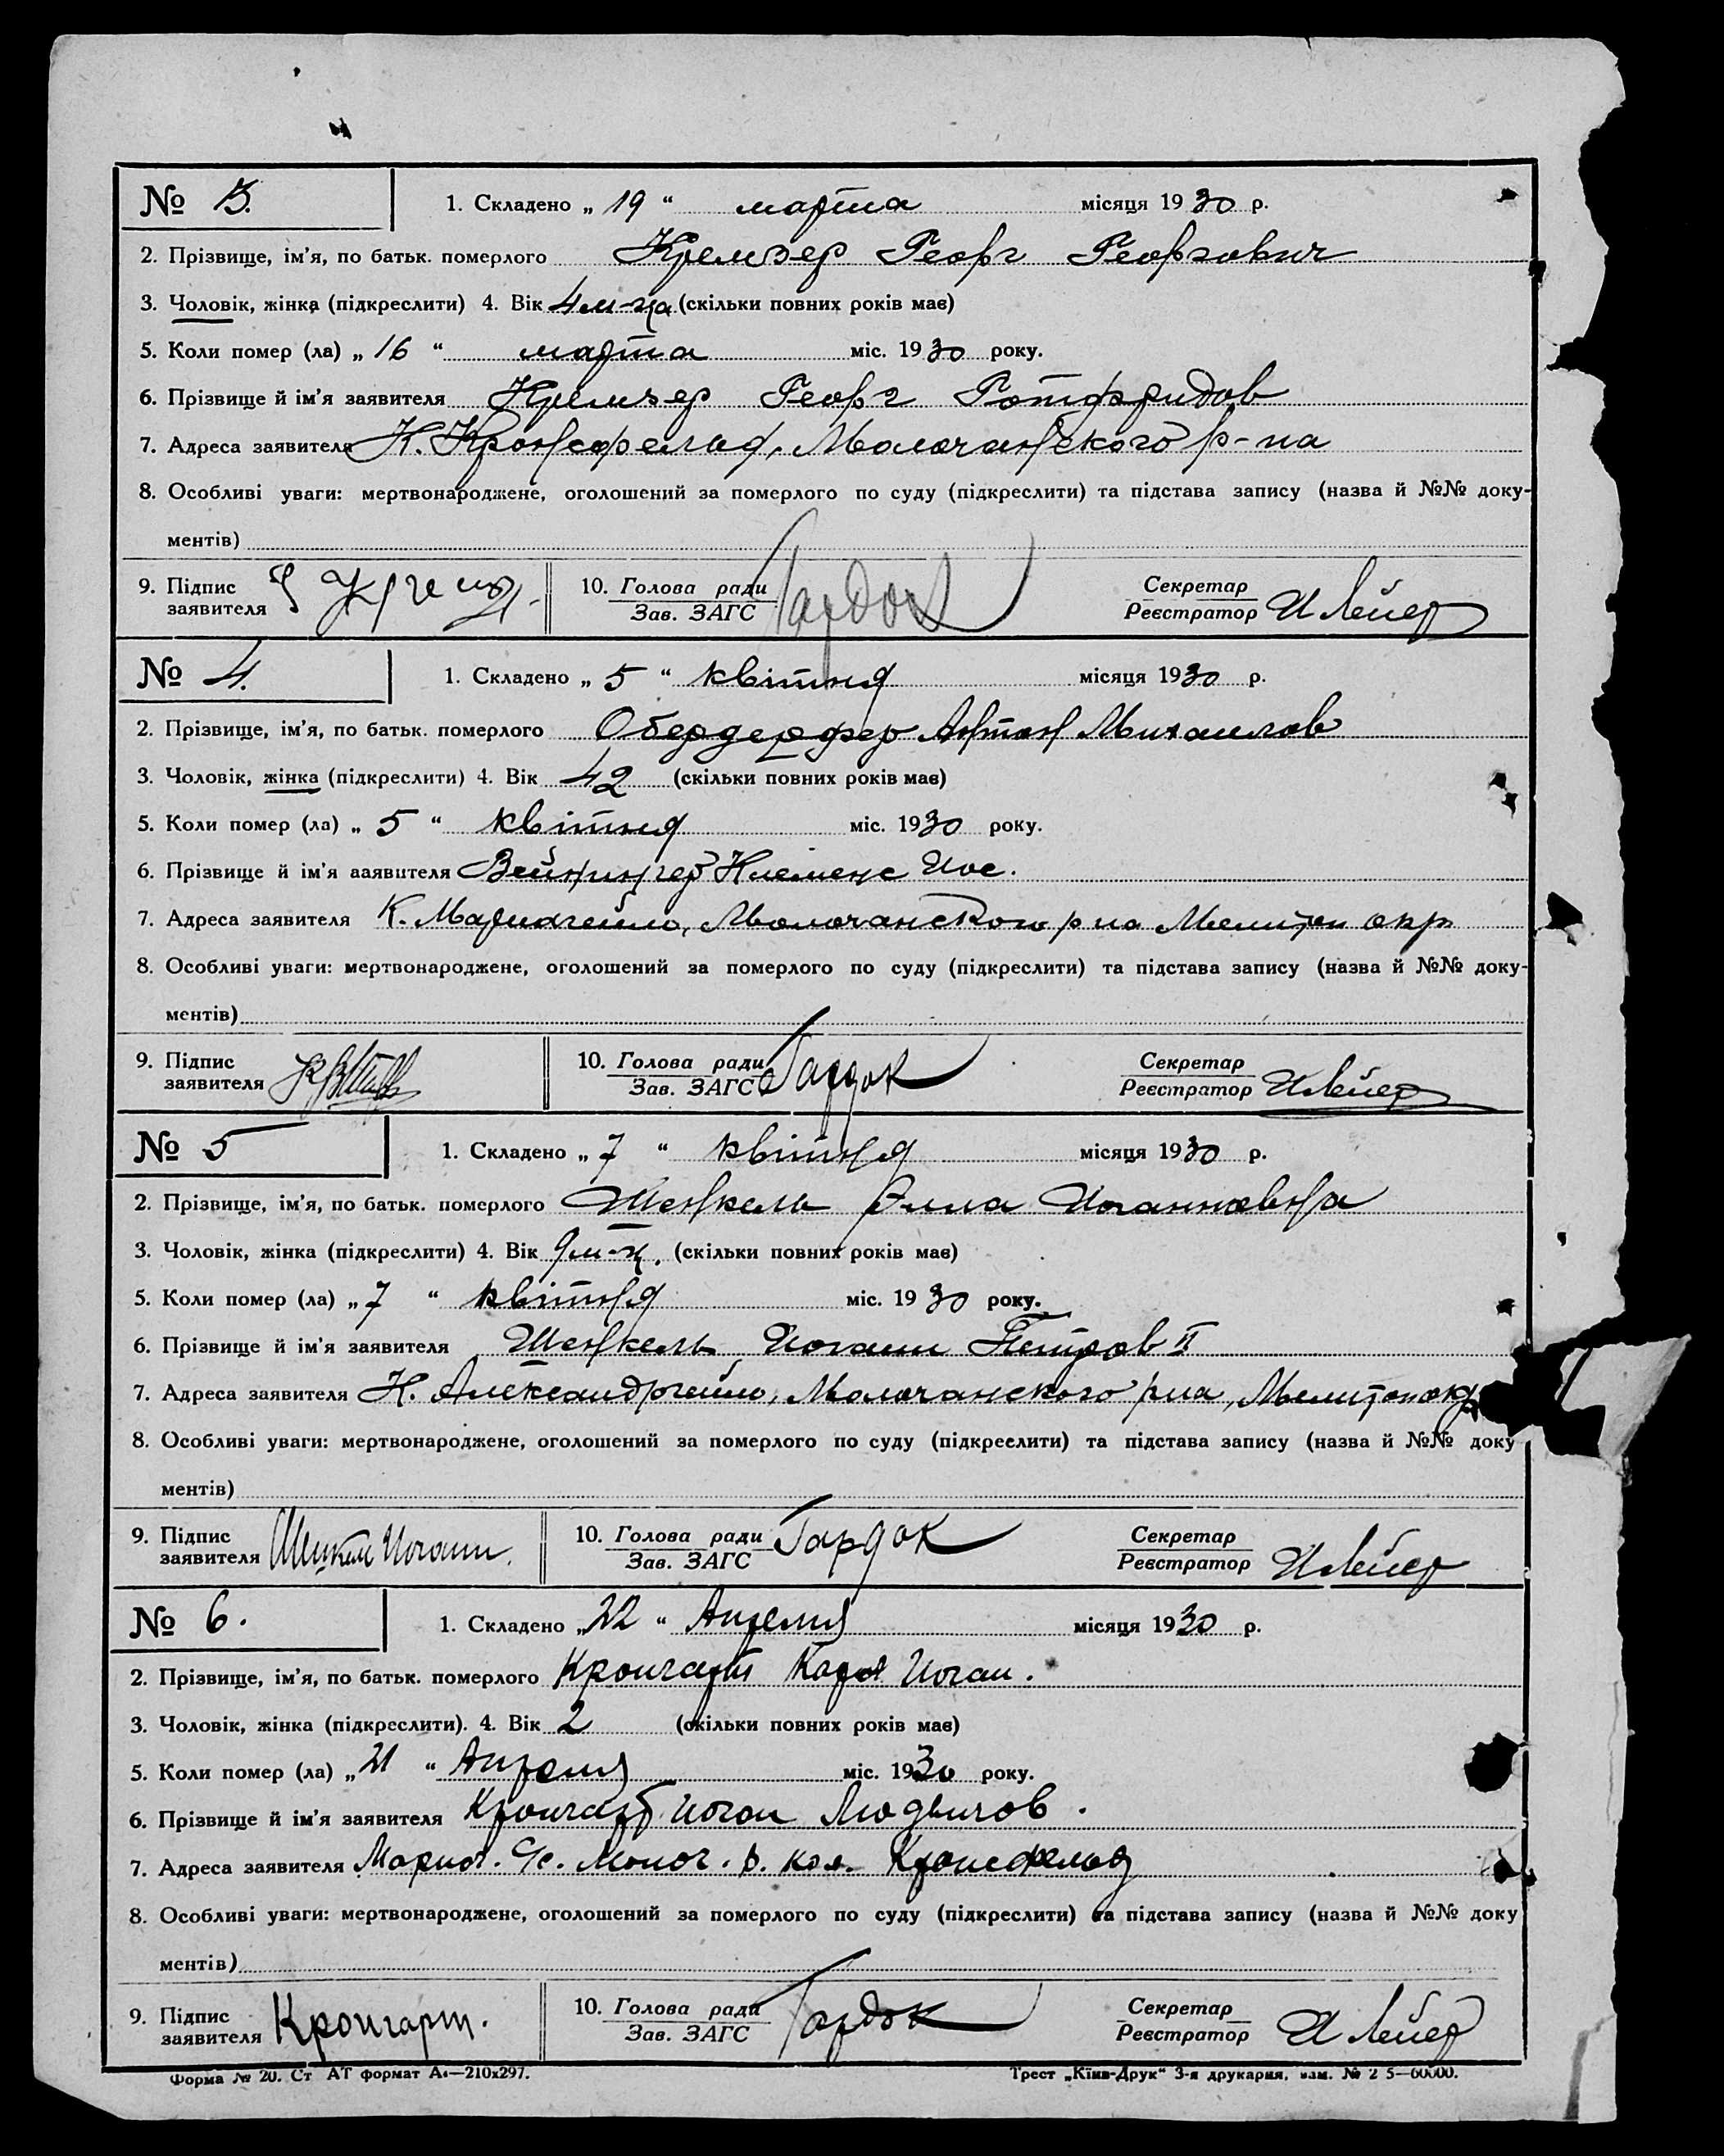 № 3. 1. Складено „ 19 “ марта місяця 1930 р.
2. Прізвище, ім'я, по батьк. померлого Кремзер Георг Георгович
3. Чоловік, жінка (підкреслити) 4. Вік 4 м-ца (скільки повних років має)
5. Коли помер (ла) „ 16 “ марта міс. 1930 року.
6. Прізвище й ім'я заявителя Кремзер Георг Готфридов
7. Адреса заявителя К. Кронсфельд, Молочанского р-на
8. Особливі уваги: мертвонароджене, оголошений за померлого по суду (підкреслити) та підстава запису (назва й №№ доку-
ментів)
9. Підпис 10. Голова ради Гардок Секретар
заявителя Зав. ЗАГС Реєстратор И Лейер
№ 4. 1. Складено „ 5 “ квітня місяця 1930 р.
2. Прізвище, ім'я, по батьк. померлого Обердерфер Антон Михаилов
3. Чоловік, жінка (підкреслити) 4. Вік 42 (скільки повних років має)
5. Коли помер (ла) „ 5 “ квітня міс. 1930 року.
6. Прізвище й ім'я заявителя Вейнингер Клеменс Иос.
7. Адреса заявителя К. Мариагейм, Молочанского р на Мелитоп окр
8. Особливі уваги: мертвонароджене, оголошений за померлого по суду (підкреслити) та підстава запису (назва й №№ доку-
ментів)
9. Підпис 10. Голова ради Гардок Секретар
заявителя Зав. ЗАГС Реєстратор И Лейер
№ 5 1. Складено „ 7 “ квітня місяця 1930 р.
2. Прізвище, ім'я, по батьк. померлого Шенкель Элла Иоганновна
3. Чоловік, жінка (підкреслити) 4. Вік 9 м-ц. (скільки повних років має)
5. Коли помер (ла) „ 7 “ квітня міс. 1930 року.
6. Прізвище й ім'я заявителя Шенкель Иоганн Петров II
7. Адреса заявителя К. Александргейм, Молочанского рна, Мелитоп окр
8. Особливі уваги: мертвонароджене, оголошений за померлого по суду (підкреслити) та підстава запису (назва й №№ доку
ментів)
9. Підпис Шенкель Иоганн. 10. Голова ради Гардок Секретар
заявителя Зав. ЗАГС Реєстратор И Лейер
№ 6. 1. Складено „ 22 “ Апреля місяця 1930 р.
2. Прізвище, ім'я, по батьк. померлого Кронгарт Карл Иоган.
3. Чоловік, жінка (підкреслити). 4. Вік 2 (скільки повних років має)
5. Коли помер (ла) „ 21 “ Апреля міс. 1930 року.
6. Прізвище й ім'я заявителя Кронгарт Иоган Людвигов.
7. Адреса заявителя Мариог. С/с. Молоч. р. кол. Кронсфельд
8. Особливі уваги: мертвонароджене, оголошений за померлого по суду (підкреслити) та підстава запису (назва й №№ доку
ментів)
9. Підпис Кронгарт. 10. Голова ради Гардок Секретар
заявителя Зав. ЗАГС Реєстратор И Лейер
Форма № 20. Ст АТ формат А4—210х297. Трест „Київ-Друк“ 3-я друкарня, зам. № 2 5—60000.